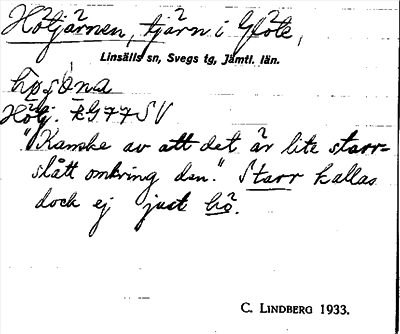 Hötjärnen, tjärn i Glöte,
Linsälls sn, Svegs tg, Jämtl. län.
Hötj. ÆG 77 SV
"Kanske av att det är lite starr-
slått omkring den." Starr kallas
dock ej just hö.
C. LINDBERG 1933.